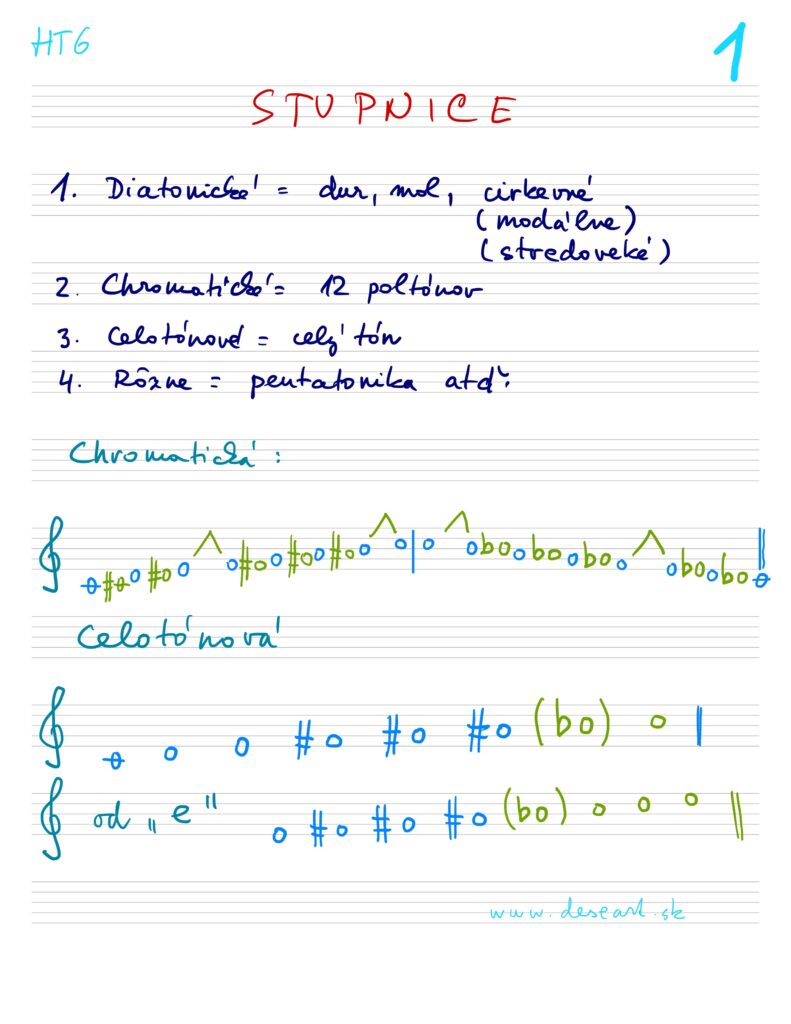 HT6
1
STUPNICE
1. Diatonické = dur, mol, cirkevné
(modálne)
(stredoveké)
2. Chromatické = 12 poltónov
3. Celotónové = celý tón
4. Rôzne = pentatonika atď.
Chromatická:
Celotónová
od „e"
www.deseart.sk